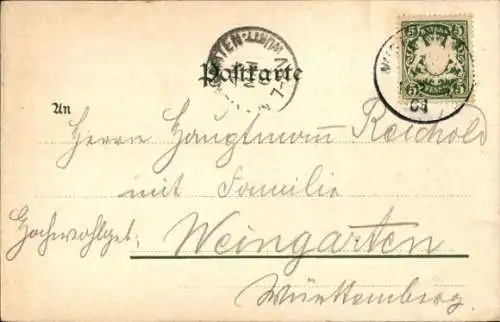 Postkarte
An
Herrn Hauptmann Reichold
mit Familie
Hochwohlgeb.
Weingarten
Württemberg.
5 5